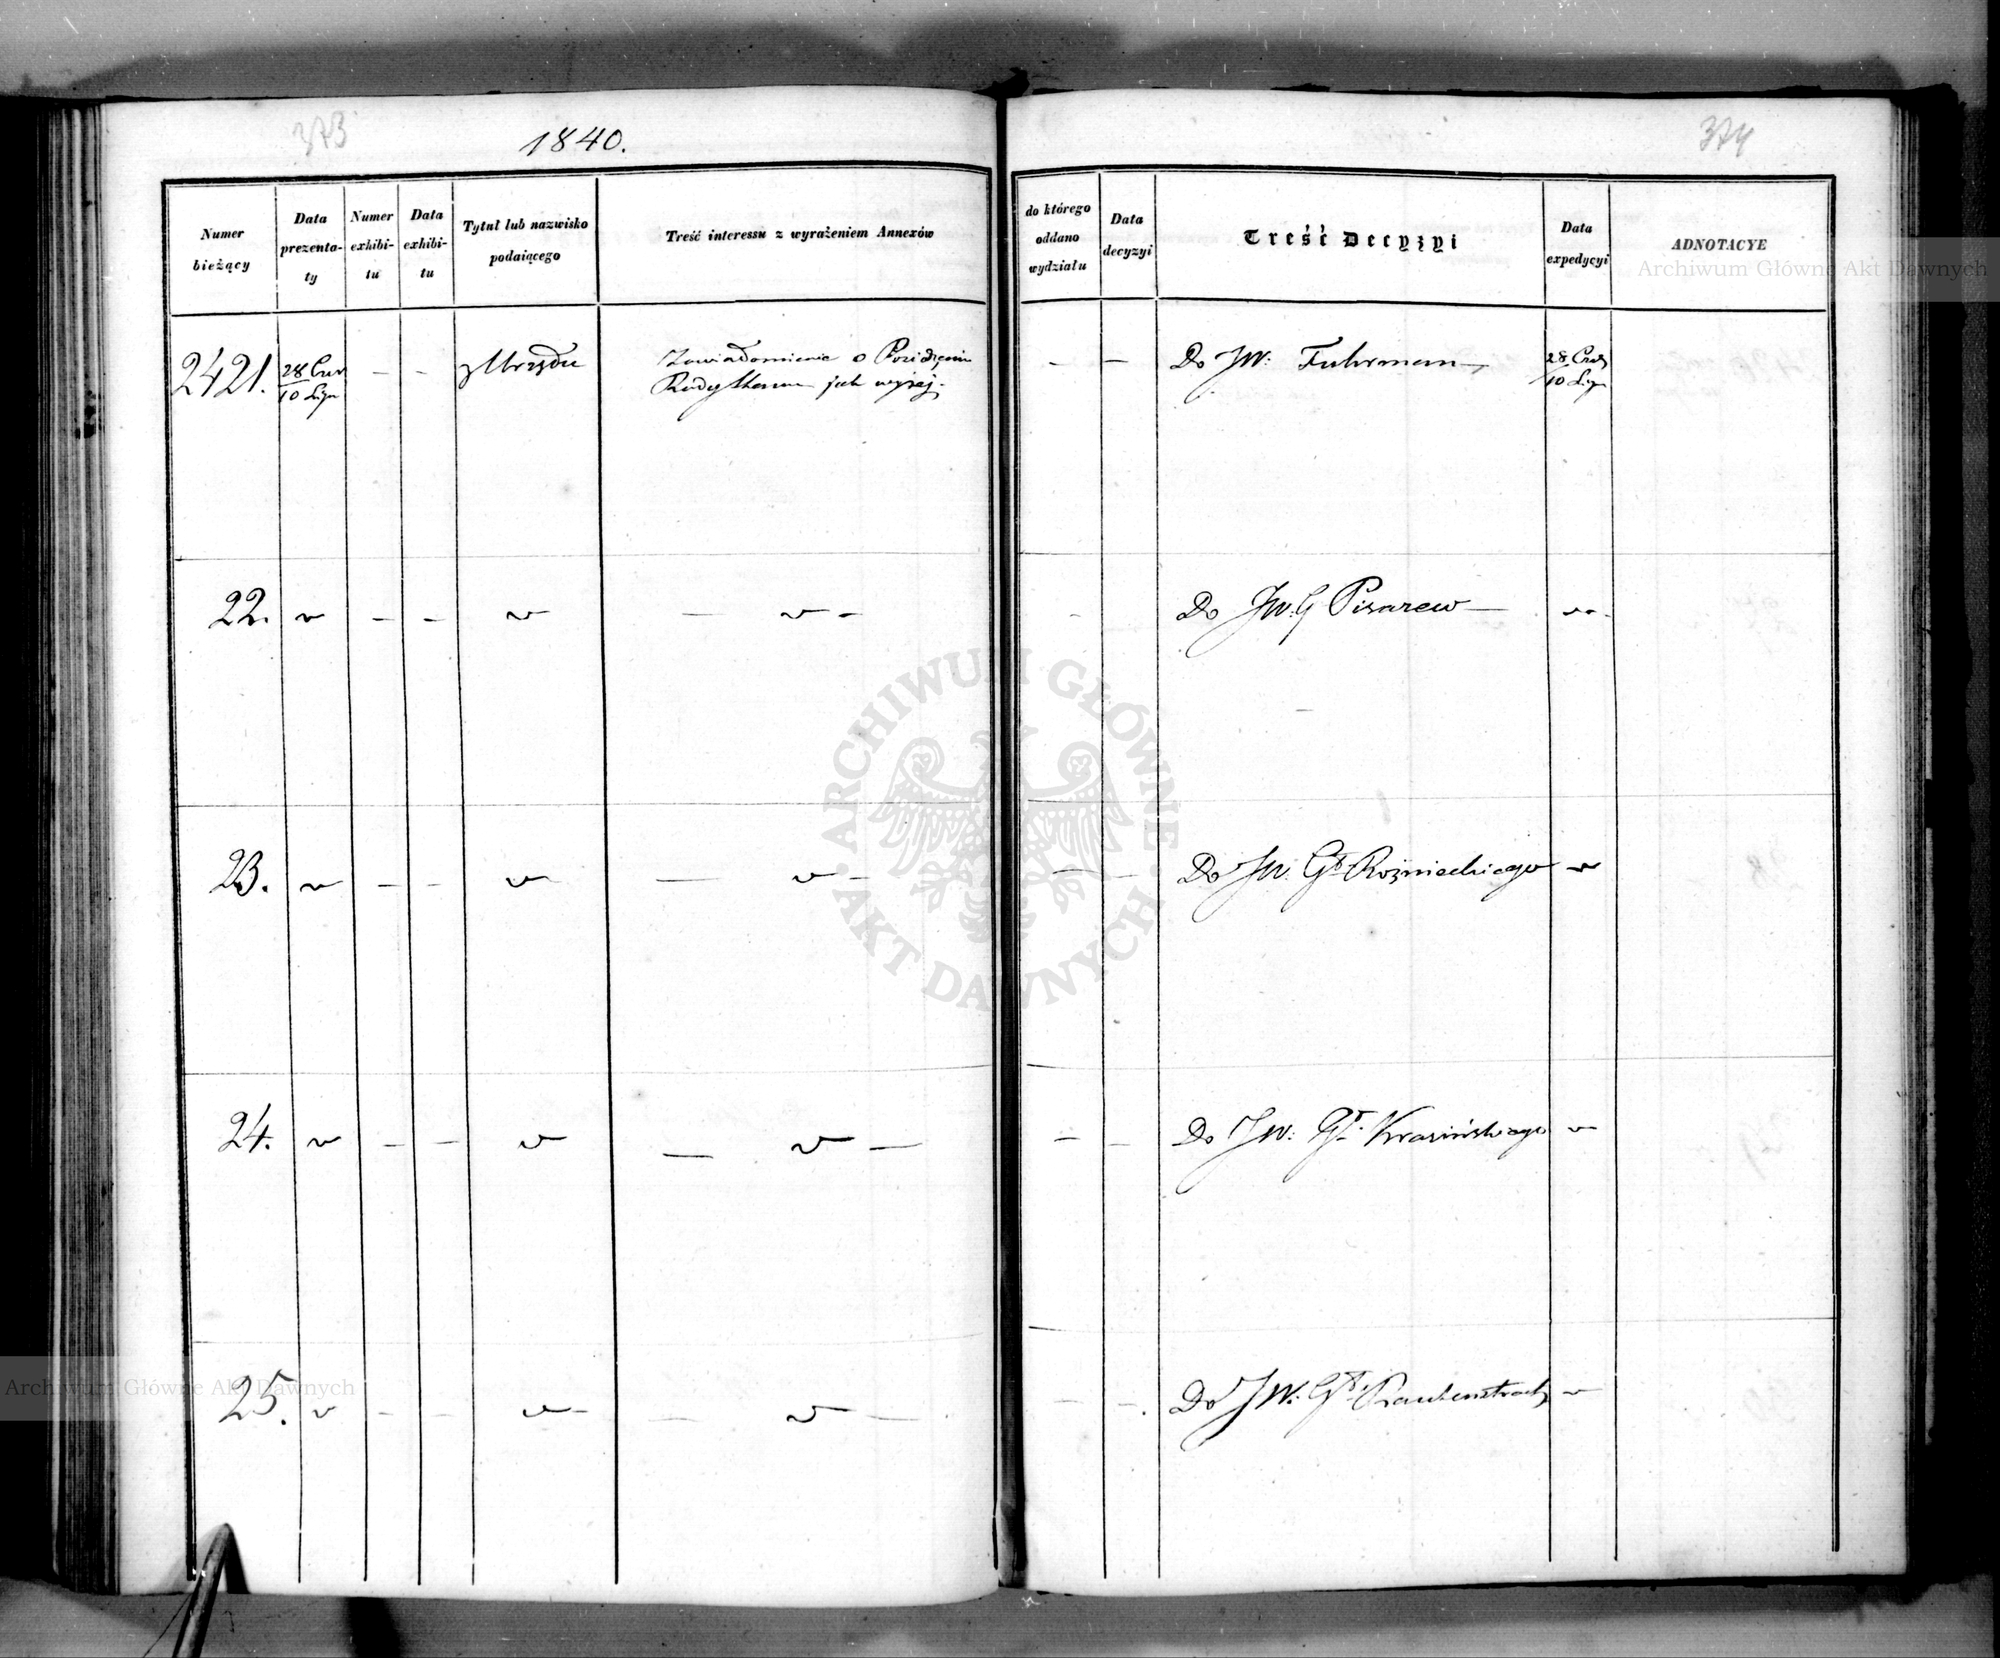 373
1840.
Numer bieżący
Data prezenta-ty
Numer exhibi-tu
Data exhibi-tu
Tytuł lub nazwisko podaiącego
Treść interessu z wyrażeniem Annexów
2421.
28 Czer
10 Lipa
— —
z Urzędu
Zawiadomienie o Posiedzeniu
Rady Stanu jak wyżej.
22. v — — v — v —
23. v — — v — v —
24. v — — v — v —
25. v — — v — v —
374
do którego oddano wydziału
Data decyzyi
Treść Decyzyi
Data expedycyi
ADNOTACYE
— — Do JW: Fuhrman
28 Czer
10 Lipa
— Do JW. G Pisarew — v -
— — Do JW. Gł Rożnieckiego v
— — Do JW: Gł Krasińskiego v
— — Do JW: Gł Rautenstrach v
Archiwum Główne Akt Dawnych
Archiwum Główne Akt Dawnych
ARCHIWUM GŁÓWNE AKT DAWNYCH